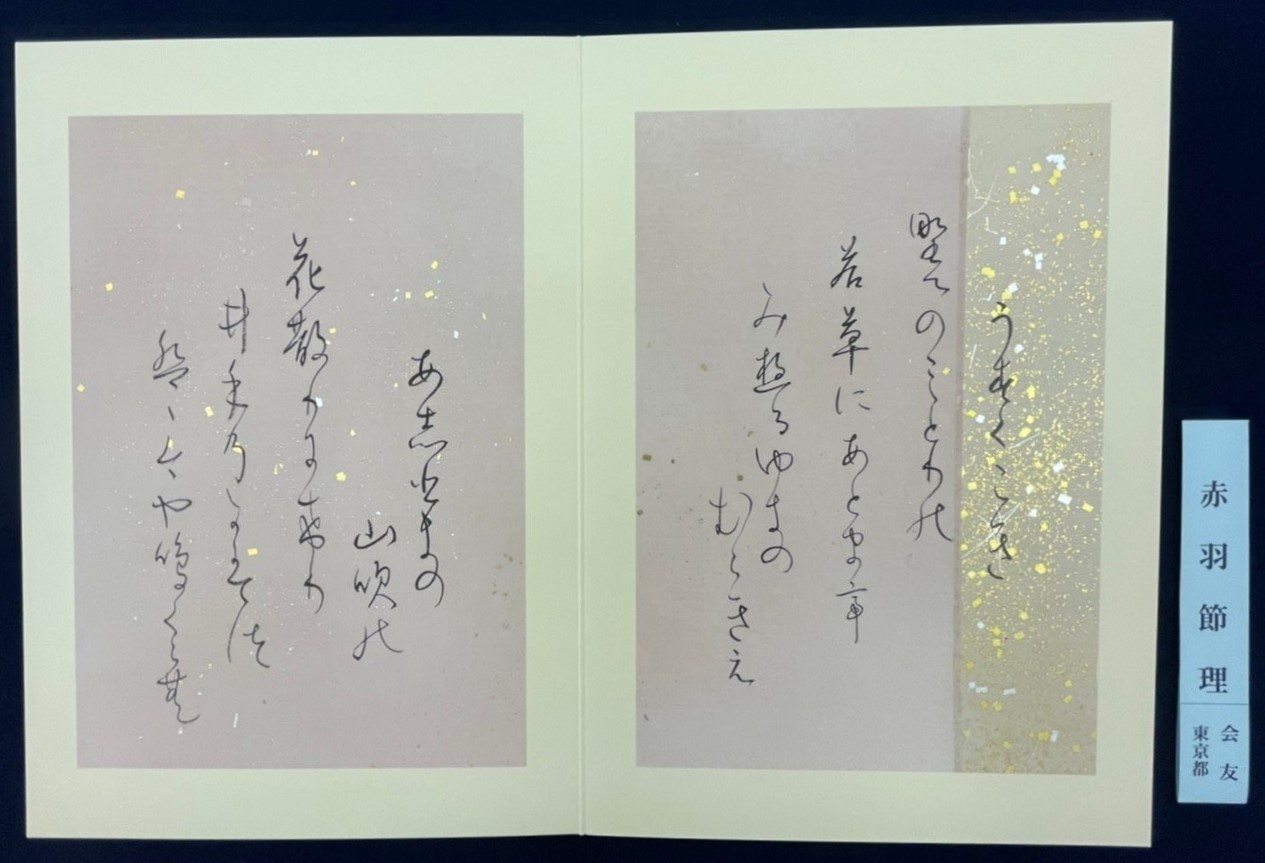 うすくこき
野へのみとりの
若草にあとまて
みゆるゆきの
むらきえ
あしひきの
山吹の
花散りにけり
井手のかはつ
は今や鳴くらむ
赤羽節理
会友
東京都